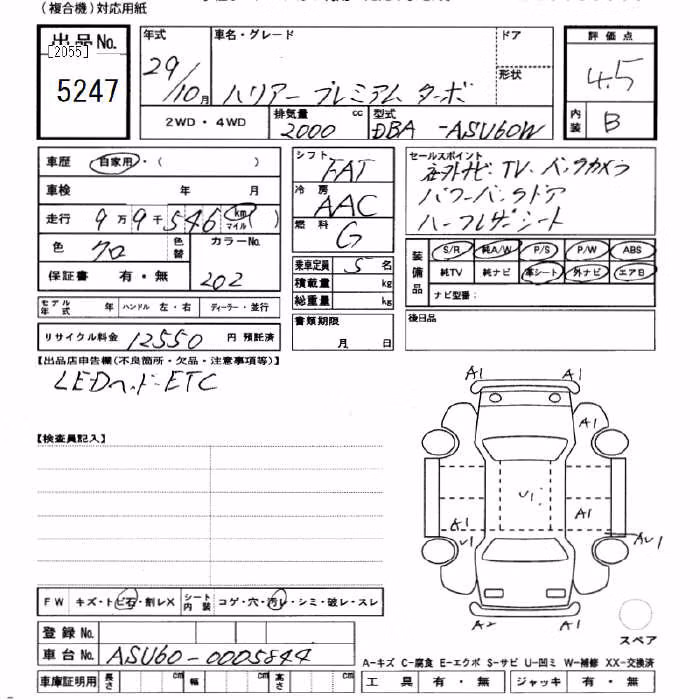 (複合機)対応用紙
出品No.
[2055]
5247
年式
29/10月
車名・グレード
ハリアー プレミアム ターボ
ドア
形状
評価点
4.5
内装
B
2WD・4WD
排気量
2000
cc
型式
DBA-ASU60W
車歴
自家用・( )
車検
年 月
走行
9万9千546
km
マイル
)
色
クロ
色替
カラーNo.
202
保証書 有・無
モデル年式
年
ハンドル 左・右
ディーラー・並行
リサイクル料金
12550
円 預託済
シフト
FAT
冷房
AAC
燃料
G
乗車定員
5
名
積載量
kg
総重量
kg
書類期限
月 日
セールスポイント
社外ナビ・TV・バックカメラ
パワーバックドア
ハーフレザーシート
装備品
S/R 純A/W P/S P/W ABS
純TV 純ナビ 革シート 外ナビ エアB
ナビ型番：
後日品
【出品店申告欄(不良箇所・欠品・注意事項等)】
LEDヘッドETC
【検査員記入】
FW
キズ・トビ石・割レX
シート内装
コゲ・穴・汚レ・シミ・破レ・スレ
登録No.
車台No.
ASU60-0005844
車庫証明用
長さ
cm
幅
cm
高さ
cm
A1 A1
A1
U1
A1
A1
U1
AU1
A2 A1
スペア
A-キズ C-腐食 E-エクボ S-サビ U-凹ミ W-補修 XX-交換済
工具 有・無
ジャッキ 有・無